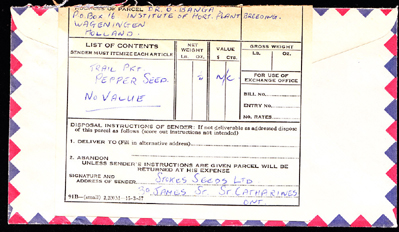 ADDRESS OF PARCEL DR. O. BANGA
P.O. BOX 16 INSTITUTE OF HORT. PLANT BREEDING.
WAGENINGEN
HOLLAND.
LIST OF CONTENTS
SENDER MUST ITEMIZE EACH ARTICLE
NET WEIGHT
LB. OZ.
VALUE
$ CTS.
GROSS WEIGHT
LB. OZ.
TRAIL PKT
PEPPER SEED
N/C
NO VALUE
FOR USE OF
EXCHANGE OFFICE
BILL NO.
ENTRY NO.
NO. RATES
DISPOSAL INSTRUCTIONS OF SENDER: If not deliverable as addressed dispose
of this parcel as follows (score out instructions not intended)
1. DELIVER TO (Fill in alternative address)
2. ABANDON
UNLESS SENDER'S INSTRUCTIONS ARE GIVEN PARCEL WILL BE
RETURNED AT HIS EXPENSE
SIGNATURE AND
ADDRESS OF SENDER.
STOKES SEEDS LTD
39 JAMES ST ST CATHARINES
ONT
91B—(small)